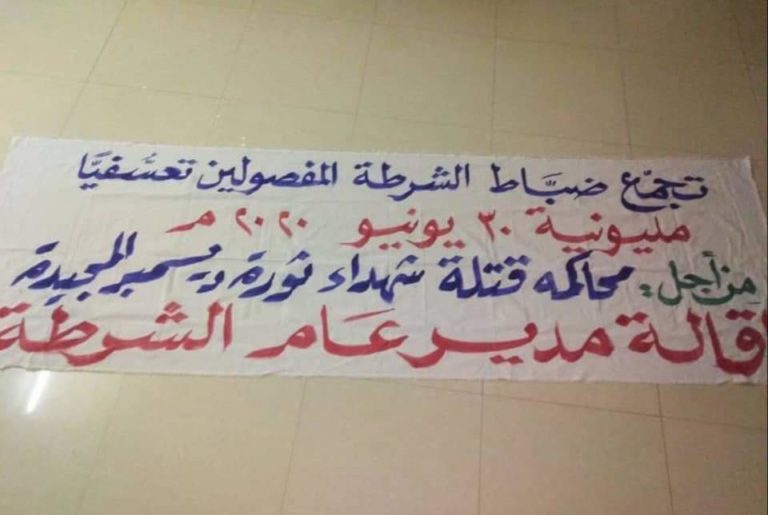 تجمّع ضبّاط الشرطة المفصولين تعسّفيًّا
مليونية ٣٠ يونيو ٢٠٢٠ م
من أجل: محاكمه قتلة شهداء ثورة ديسمبر المجيدة
اقالة مدير عام الشرطة